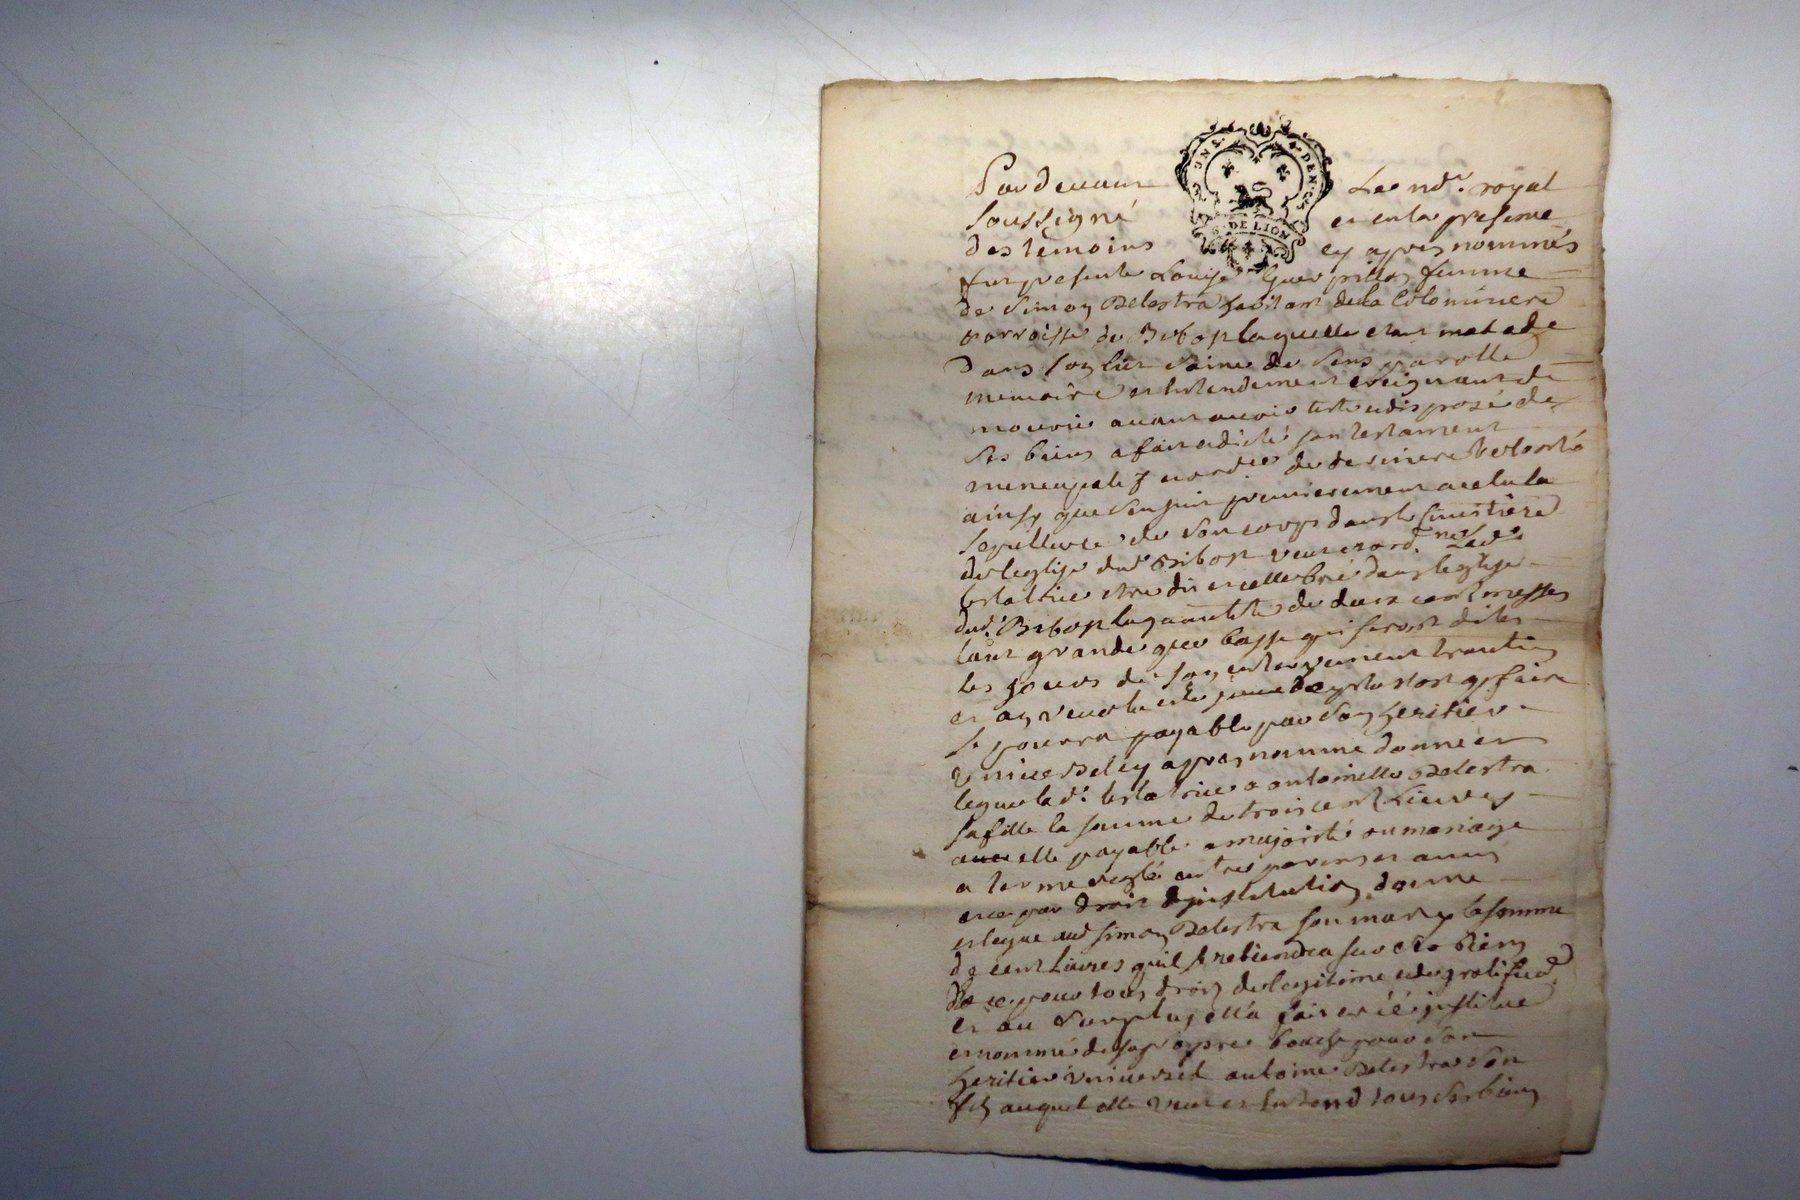 UNS. 4. DEN.
G. DE LION
Pardevant Le no.re royal
soussigné et en la presence
des témoins cy apres nommés
fut presente Louise femme
de Simon Delestra habitant de la Colominere
parroisse de Bibost laquelle etant malade
dans son lict saine de sens parolle
memoire et entendement creignant de
mourir avant avoir teste et disposé de
ses biens a fait et dicté son testament
nuncupatif et ordre de derniere volonté
ainsy que s'ensuit premierement a eslu la
sepulture de son corps dans le simetiere
de leglise dud. Bibost veut et ord.ne lad.
testatrice etre dit et cellebré dans leglise
dud. Bibost la quantité de deux cent messes
tant grande que basse qui seront dites
les jours de son enterrement
et
se pourra payable par son heritier
universel cy apres nommé donne et
legue lad. testatrice a antoinette Delestra
sa fille la somme de trois cent Livres
a elle payable a majorité ou mariage
a terme reglé entre parens et amis
et ce par droit d'institution donne
et legue aud. simon Delestra son mary la somme
de cent Livres qu'il se retiendra sur ses biens
et ce pour tous droits de legitime et de
et au surplus ella fait creé institué
et nommé de sa propre bouche pour son
heritier universel antoine Delestra son
fils auquel elle veut et entend tous ses biens